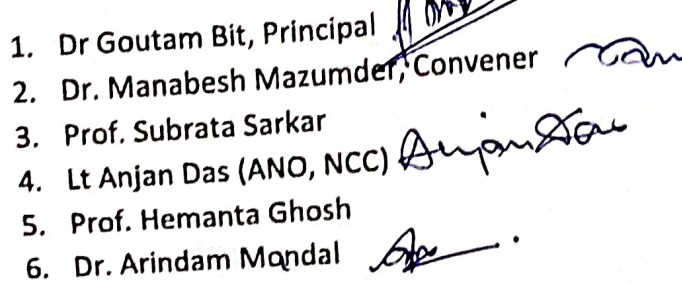 1. Dr Goutam Bit, Principal
2. Dr. Manabesh Mazumder, Convener
3. Prof. Subrata Sarkar
4. Lt Anjan Das (ANO, NCC) Anjan Das
5. Prof. Hemanta Ghosh
6. Dr. Arindam Mondal